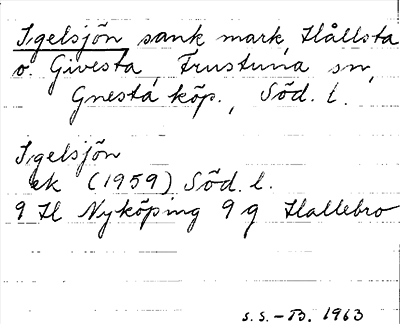 Igelsjön sank mark, Hållsta
o. Givesta, Frustuna sn,
Gnesta köp., Söd. l.
Igelsjön
ek (1959) Söd. l.
9 H Nyköping 9 g Hallebro
S.S.-B. 1963